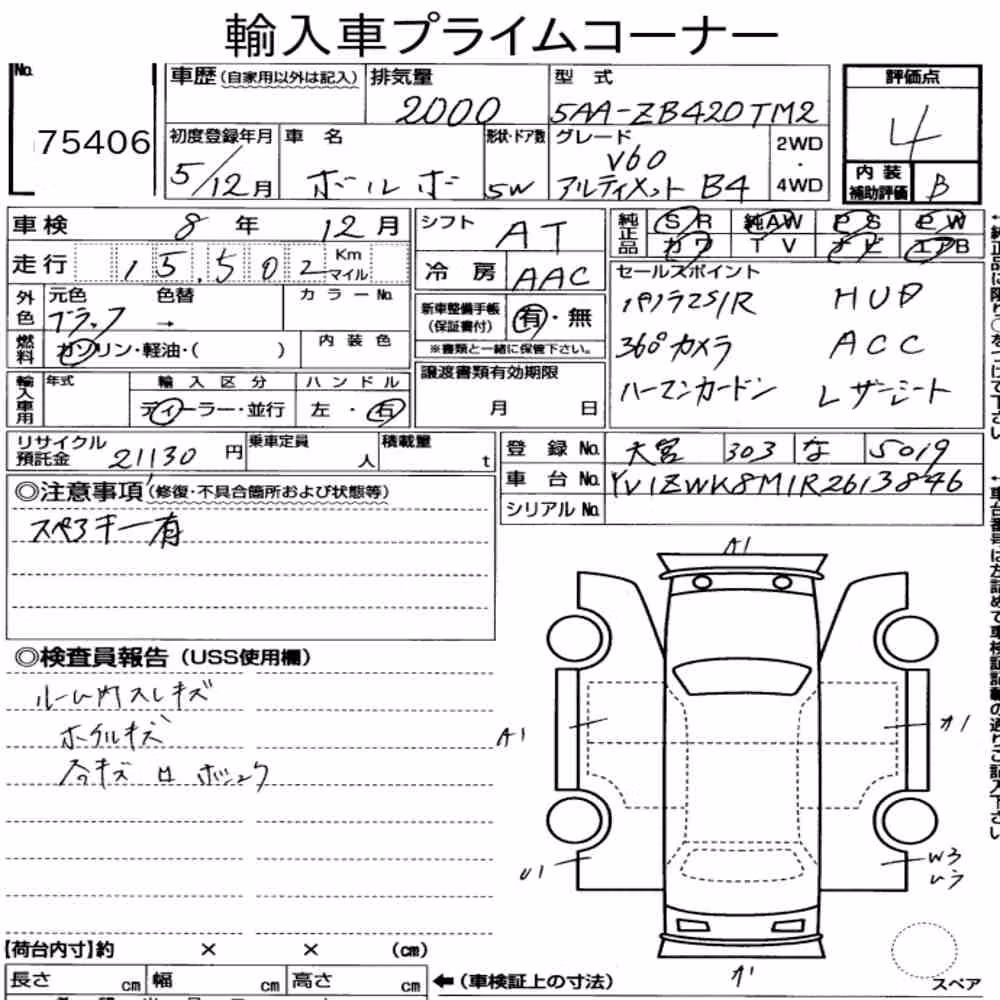 輸入車プライムコーナー
No. 75406
車歴(自家用以外は記入)
排気量 2000
型式 5AA-ZB420TM2
評価点 4
内装補助評価 B
初度登録年月 5/12月
車名 ボルボ
形状・ドア数 5W
グレード V60 アルティメット B4
2WD・4WD
車検 8年 12月
走行 15,502 Km マイル
シフト AT
冷房 AAC
純正品 SR 純AW PS PW
カワ TV ナビ エアB
セールスポイント
パノラマS/R HUD
360°カメラ ACC
ハーマンカードン レザーシート
外色 元色 ブラック 色替 → カラーNo.
燃料 ガソリン・軽油・( ) 内装色
新車整備手帳(保証書付) 有・無
※書類と一緒に保管下さい。
輸入車用 年式 輸入区分 ディーラー・並行 ハンドル 左・右
譲渡書類有効期限 月 日
リサイクル預託金 21130円 乗車定員 人 積載量 t
登録No. 大宮 303 な 5019
車台No. YV1ZWK8M1R2613846
シリアルNo.
◎注意事項(修復・不具合箇所および状態等)
スペアキー有
◎検査員報告(USS使用欄)
ルーム内スレキズ
ホイルキズ
A1
A1
A1
U1
W3
A1
スペア
【荷台内寸】約 × × (cm)
長さ cm 幅 cm 高さ cm ←(車検証上の寸法)